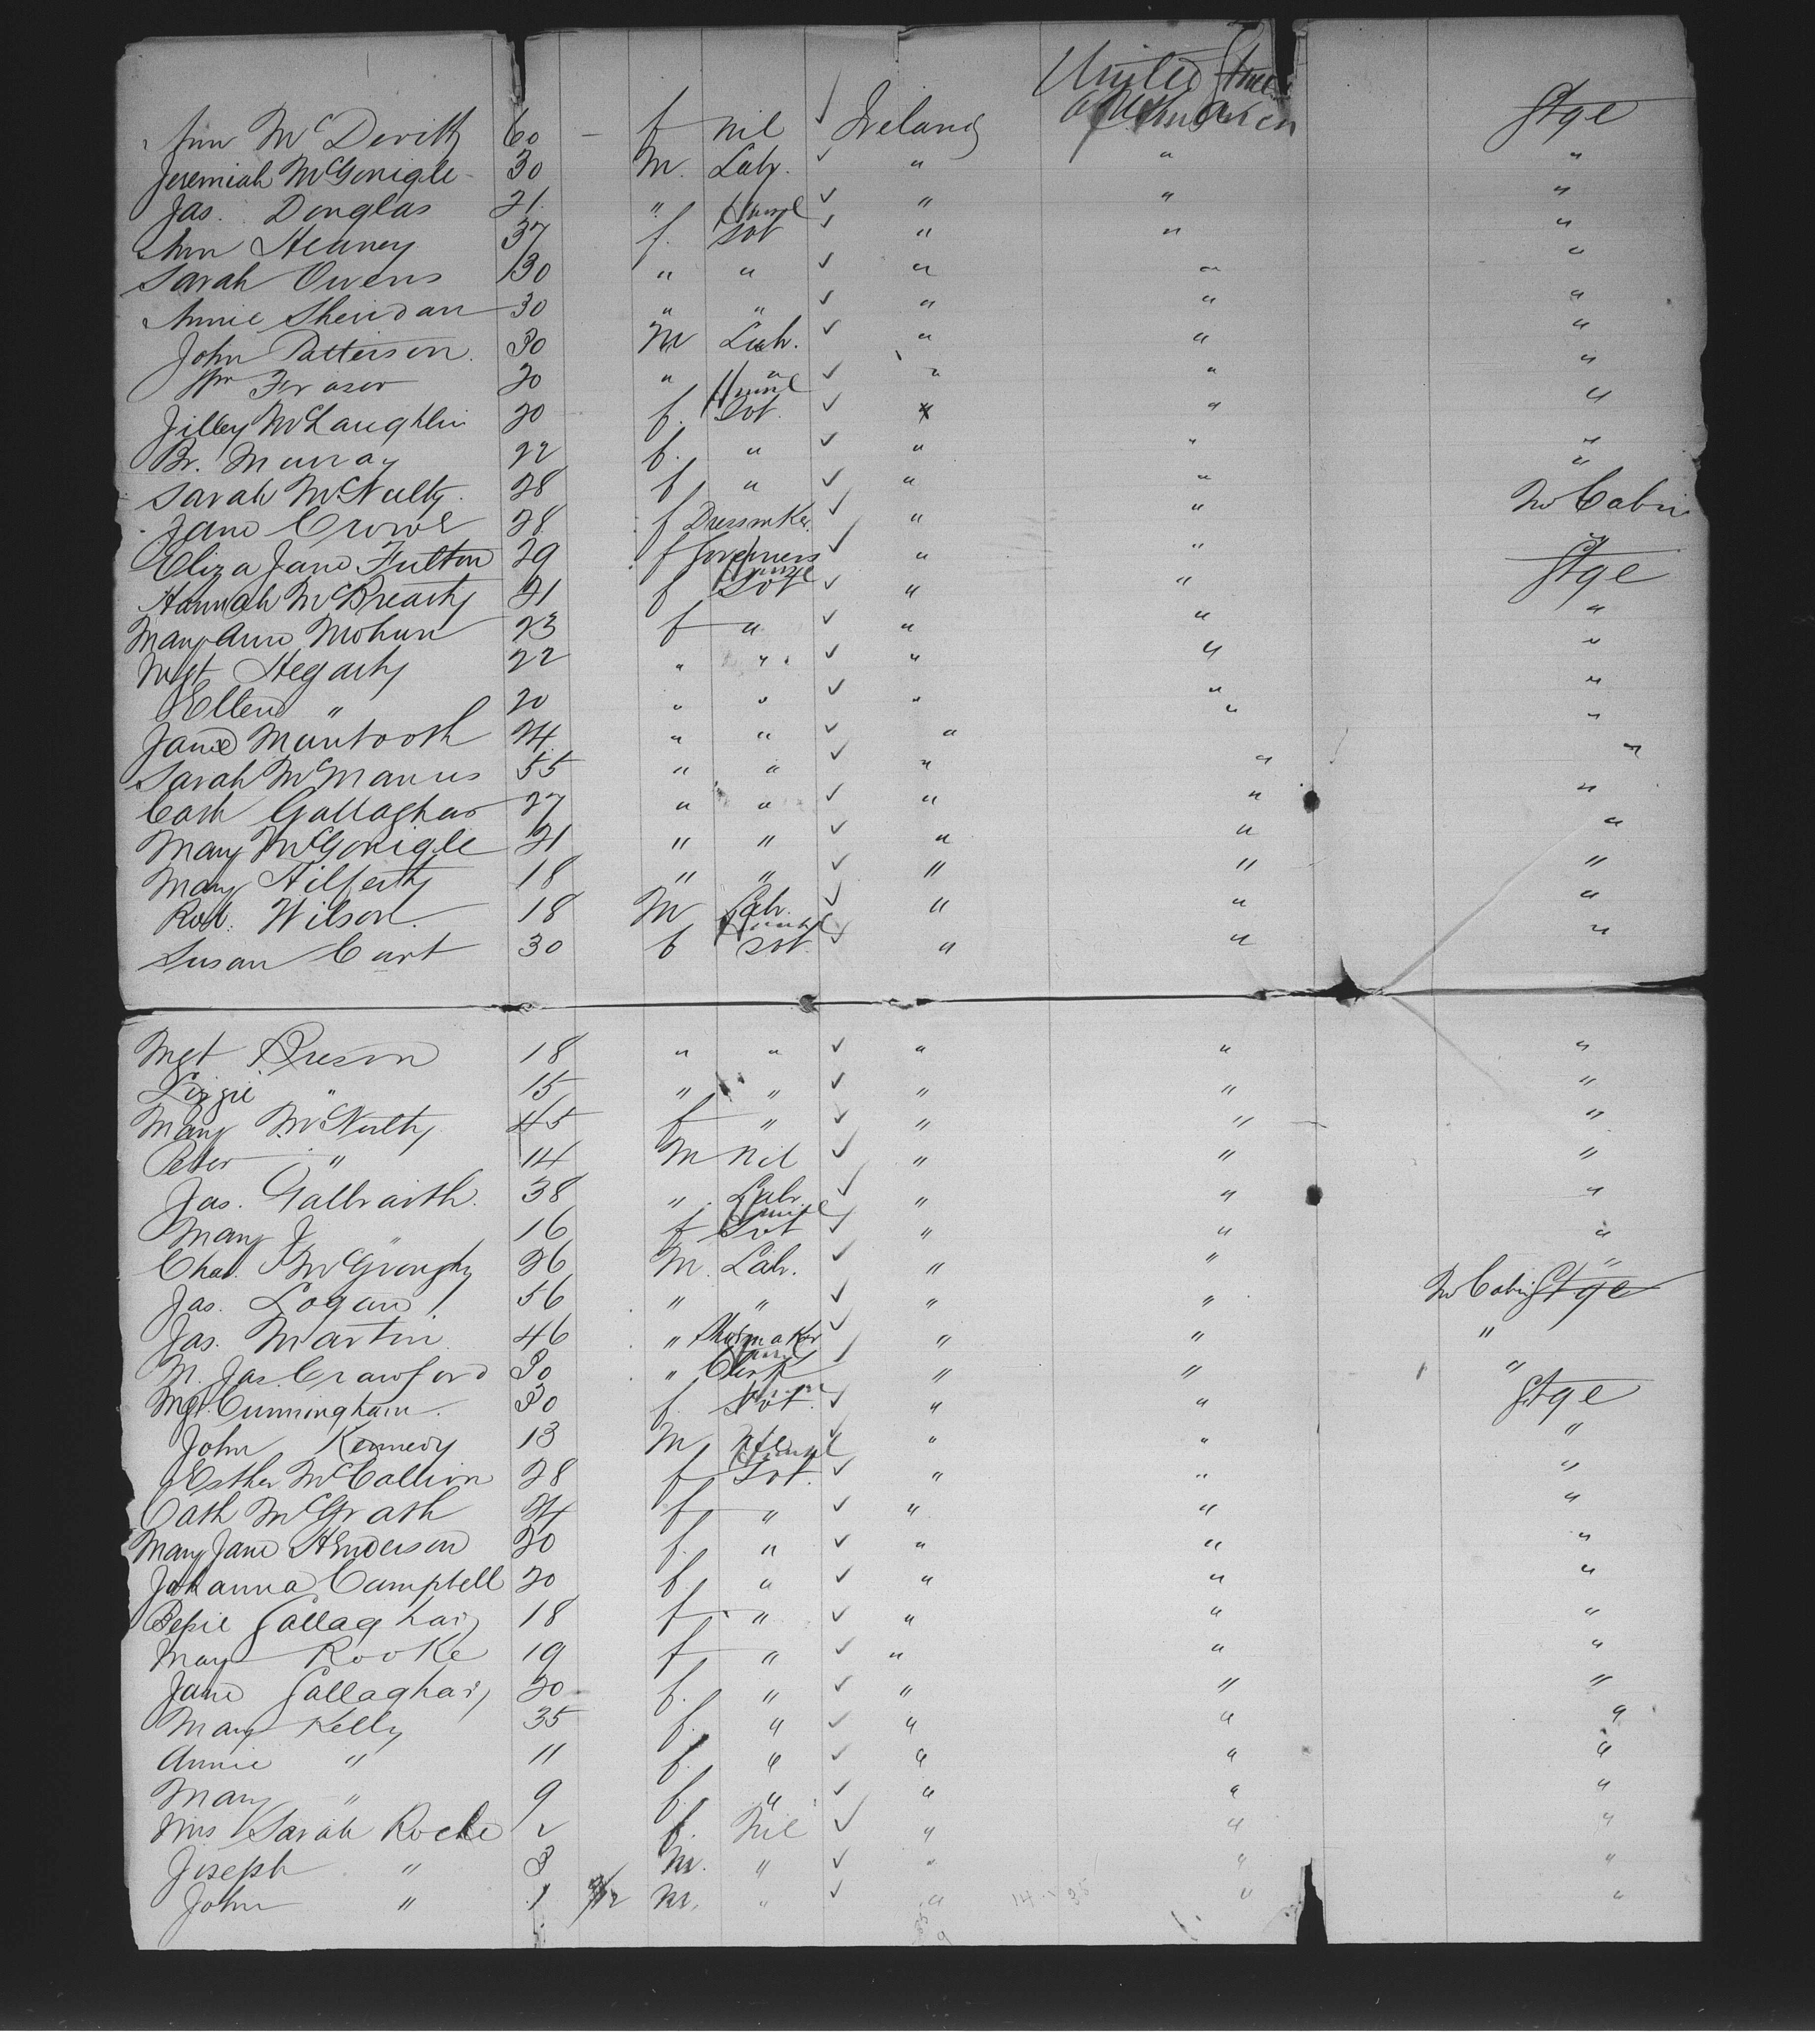 United States
Ann McDevitt 60 – f nil ✓ Ireland of America Stge
Jeremiah McGonigle 30 M. Labr. ✓ " " "
Jas. Douglas 21 " " ✓ " " "
Ann Heaney 37 f. Svt ✓ " " "
Sarah Owens 30 " " ✓ " " "
Annie Sheridan 30 " " ✓ " " "
John Patterson 30 M Labr. ✓ " " "
Wm Fraser 20 " " ✓ " " "
McLaughlin 20 f. Svt. ✓ " " "
Br. Murray 22 f. " ✓ " " "
Sarah McNulty 28 f " ✓ " " "
Jane Crowe 28 f Dressmker ✓ " " Cabin
Eliza Jane Fulton 29 f Governess ✓ " " "
Hannah McBrearty 21 f Svt ✓ " " Stge
Mary Ann Mohun 23 f " ✓ " " "
Mgt Hegarty 22 " " ✓ " " "
Ellen " 20 " " ✓ " " "
Jane Mantooth 24 " " ✓ " " "
Sarah McManus 55 " " ✓ " " "
Cath Gallagher 27 " " ✓ " " "
Mary McGonigle 21 " " ✓ " " "
Mary Hilferty 18 " " ✓ " " "
Robt. Wilson 18 M Labr. ✓ " " "
Susan Curt 30 f Svt. ✓ " " "
Mgt 18 " " ✓ " " "
Lizzie " 15 " " ✓ " " "
Mary McNulty 45 f " ✓ " " "
Peter " 14 M Nil ✓ " " "
Jas. Galbraith 38 " Labr. ✓ " " "
Mary J. " 16 f Svt ✓ " " "
Chas. 26 M. Labr. ✓ " " "
Jas. Logan 56 " " ✓ " " Cabin Stge
Jas. Martin 46 " Shoemaker ✓ " " "
M. Jas. Crawford 30 " Clerk ✓ " " "
Mgt. Cunningham 30 f. Svt. ✓ " " Stge
John Kennedy 13 M nil ✓ " " "
Esther McCallion 28 f Svt. ✓ " " "
Cath McGrath 24 f " ✓ " " "
Mary Jane Henderson 20 f. " ✓ " " "
Johanna Campbell 20 f. " ✓ " " "
Bessie Gallagher 18 f " ✓ " " "
Mary Rooke 19 f " ✓ " " "
Jane Gallagher 20 f. " ✓ " " "
Mary Kelly 35 f. " ✓ " " "
Annie " 11 f. " ✓ " " "
Mary " 9 f. " ✓ " " "
Sarah 2 f. Nil ✓ " " "
Joseph " 3 M. " ✓ " " "
John " 1 M. " ✓ " " "